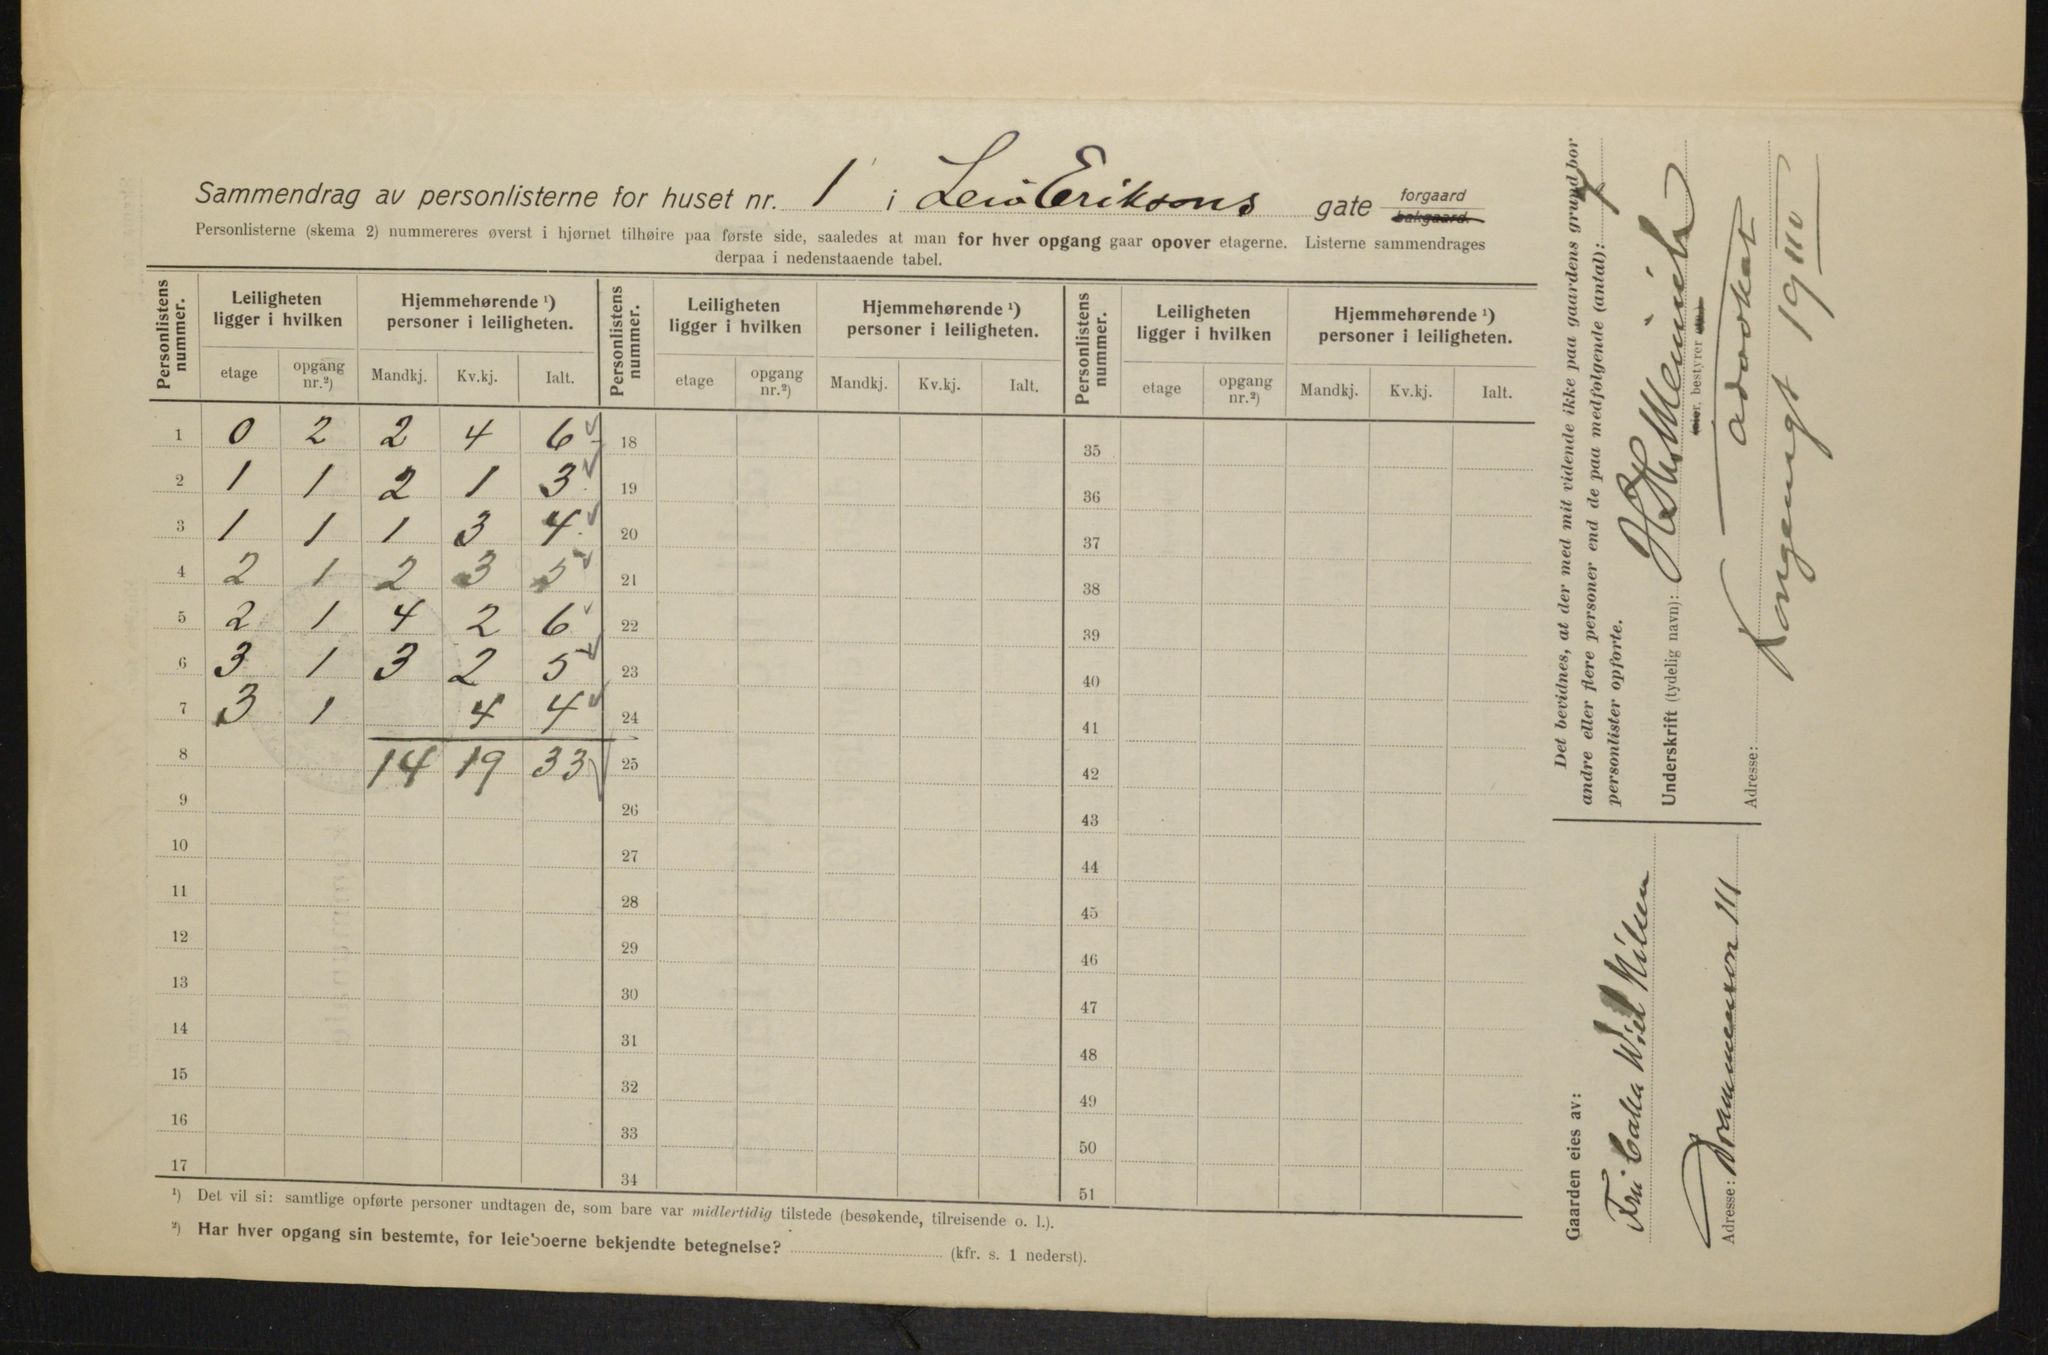 Sammendrag av personlisterne for huset nr. 1 i Leiv Eriksons gate forgaard bakgaard.
Personlisterne (skema 2) nummereres øverst i hjørnet tilhøire paa første side, saaledes at man for hver opgang gaar opover etagerne. Listerne sammendrages
derpaa i nedenstaaende tabel.
Personlistens nummer. Leiligheten ligger i hvilken Hjemmehørende ¹) personer i leiligheten. Personlistens nummer. Leiligheten ligger i hvilken Hjemmehørende ¹) personer i leiligheten. Personlistens nummer. Leiligheten ligger i hvilken Hjemmehørende ¹) personer i leiligheten.
etage opgang nr.²) Mandkj. Kv.kj. Ialt. etage opgang nr.²) Mandkj. Kv.kj. Ialt. etage opgang nr.²) Mandkj. Kv.kj. Ialt.
1 0 2 2 4 6 18 35
2 1 1 2 1 3 19 36
3 1 1 1 3 4 20 37
4 2 1 2 3 5 21 38
5 2 1 4 2 6 22 39
6 3 1 3 2 5 23 40
7 3 1 4 4 24 41
8 14 19 33 25 42
9 26 43
10 27 44
11 28 45
12 29 46
13 30 47
14 31 48
15 32 49
16 33 50
17 34 51
¹) Det vil si: samtlige opførte personer undtagen de, som bare var midlertidig tilstede (besøkende, tilreisende o. l.).
²) Har hver opgang sin bestemte, for leieboerne bekjendte betegnelse? (kfr. s. 1 nederst).
Det bevidnes, at der med mit vidende ikke paa gaardens grund bor
andre eller flere personer end de paa medfølgende (antal): 7
personlister opførte.
Underskrift (tydelig navn):
eier, bestyrer
advokat
Adresse: Kongensgt 19 III
Gaarden eies av:
Fru Nilsen
Adresse: Drammensvn 111